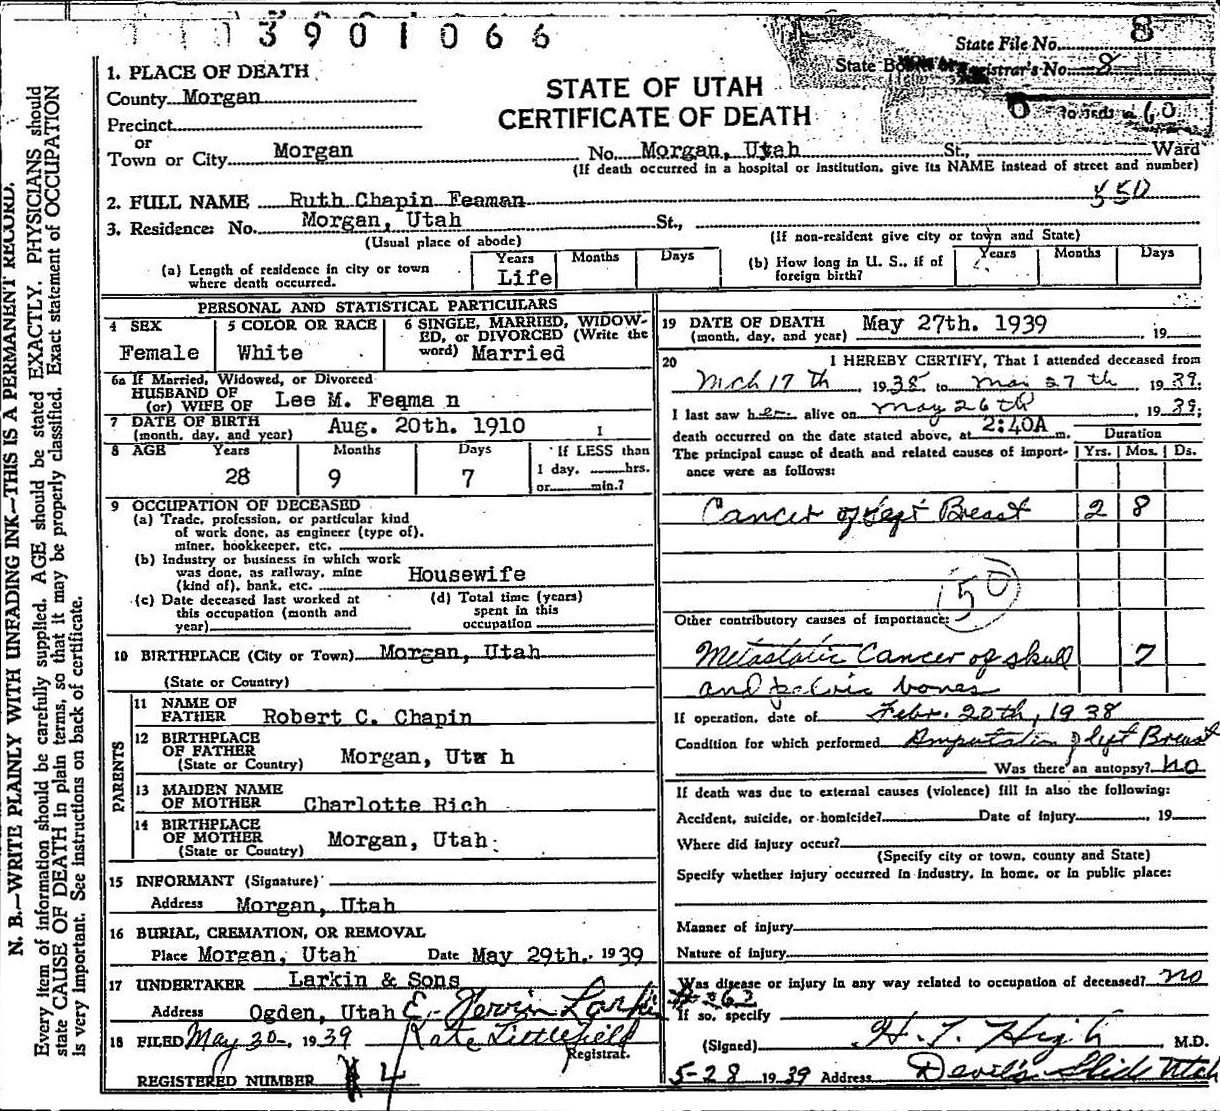 3901066
State File No. 8
State Board Registrar's No. 8
1. PLACE OF DEATH
County Morgan
STATE OF UTAH
CERTIFICATE OF DEATH
Precinct
or
Town or City Morgan No. Morgan, Utah St., Ward
(If death occurred in a hospital or institution, give its NAME instead of street and number)
2. FULL NAME Ruth Chapin Feaman 550
3. Residence: No. Morgan, Utah St.,
(Usual place of abode) (If non-resident give city or town and State)
(a) Length of residence in city or town where death occurred. Years Life Months Days
(b) How long in U. S., if of foreign birth? Years Months Days
PERSONAL AND STATISTICAL PARTICULARS
4 SEX Female
5 COLOR OR RACE White
6 SINGLE, MARRIED, WIDOWED, OR DIVORCED (Write the word) Married
6a If Married, Widowed, or Divorced
HUSBAND OF
(or) WIFE OF Lee M. Feama n
7 DATE OF BIRTH
(month, day, and year) Aug. 20th. 1910
8 AGE Years 28 Months 9 Days 7 If LESS than
1 day, hrs.
or min.?
9 OCCUPATION OF DECEASED
(a) Trade, profession, or particular kind
of work done, as engineer (type of),
miner, bookkeeper, etc.
(b) Industry or business in which work
was done, as railway, mine
(kind of), bank, etc. Housewife
(c) Date deceased last worked at
this occupation (month and
year)
(d) Total time (years)
spent in this
occupation
10 BIRTHPLACE (City or Town) Morgan, Utah
(State or Country)
PARENTS
11 NAME OF
FATHER Robert C. Chapin
12 BIRTHPLACE
OF FATHER Morgan, Uta h
(State or Country)
13 MAIDEN NAME
OF MOTHER Charlotte Rich
14 BIRTHPLACE
OF MOTHER Morgan, Utah
(State or Country)
15 INFORMANT (Signature)
Address Morgan, Utah
16 BURIAL, CREMATION, OR REMOVAL
Place Morgan, Utah Date May 29th. 1939
17 UNDERTAKER Larkin & Sons
Address Ogden, Utah E. Larkin
18 FILED May 30, 1939 Kate Littlefield
Registrar.
REGISTERED NUMBER 4
19 DATE OF DEATH
(month, day, and year) May 27th. 1939 19
20 I HEREBY CERTIFY, That I attended deceased from
Mch 17th, 1938, to May 27th, 1939.
I last saw her alive on May 26th, 1939;
death occurred on the date stated above, at 2:40A m.
Duration
The principal cause of death and related causes of importance were as follows: Yrs. Mos. Ds.
Cancer of left Breast 2 8
50
Other contributory causes of importance:
Metastatic Cancer of skull 7
and pelvic bones
If operation, date of Febr. 20th, 1938
Condition for which performed Amputation of left Breast
Was there an autopsy? no
If death was due to external causes (violence) fill in also the following:
Accident, suicide, or homicide? Date of injury , 19
Where did injury occur?
(Specify city or town, county and State)
Specify whether injury occurred in industry, in home, or in public place:
Manner of injury
Nature of injury
Was disease or injury in any way related to occupation of deceased? no
If so, specify
(Signed) H. T. High M.D.
5-28 1939 Address Devil's Slide Utah
N. B.—WRITE PLAINLY WITH UNFADING INK—THIS IS A PERMANENT RECORD.
Every item of information should be carefully supplied. AGE should be stated EXACTLY. PHYSICIANS should
state CAUSE OF DEATH in plain terms, so that it may be properly classified. Exact statement of OCCUPATION
is very important. See instructions on back of certificate.